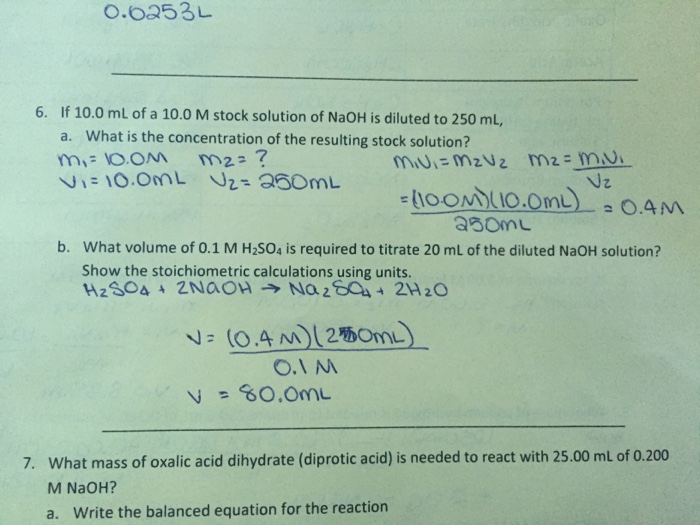 0.0253L
6. If 10.0 mL of a 10.0 M stock solution of NaOH is diluted to 250 mL,
a. What is the concentration of the resulting stock solution?
M₁ = 10.0M M₂ = ? M₁V₁ = M₂V₂ M₂ = M₁V₁
V₁ = 10.0mL V₂ = 250mL V₂
= (10.0M)(10.0mL) = 0.4M
250mL
b. What volume of 0.1 M H₂SO₄ is required to titrate 20 mL of the diluted NaOH solution?
Show the stoichiometric calculations using units.
H₂SO₄ + 2NaOH → Na₂SO₄ + 2H₂O
V = (0.4M)(20mL)
0.1 M
V = 80.0mL
7. What mass of oxalic acid dihydrate (diprotic acid) is needed to react with 25.00 mL of 0.200
M NaOH?
a. Write the balanced equation for the reaction